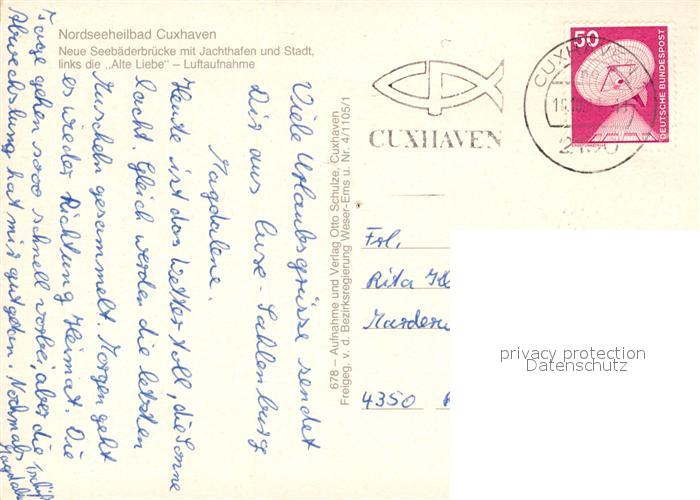 Nordseeheilbad Cuxhaven
Neue Seebäderbrücke mit Jachthafen und Stadt,
links die „Alte Liebe" – Luftaufnahme
Viele Urlaubsgrüsse sendet
Dir aus Cuxe-Sahlenburg
Magdalene.
Heute ist das Wetter toll, die Sonne
lacht. Gleich werden die letzten
Muscheln gesammelt. Morgen geht
es wieder Richtung Heimat. Die
Tage gehen sooo schnell vorbei, aber die
Abwechslung hat mir gutgetan. Nochmals
678 – Aufnahme und Verlag Otto Schulze, Cuxhaven
Freigeg. v. d. Bezirksregierung Weser-Ems u. Nr. 4/1105/1
CUXHAVEN
CUXHAVEN 1
2190
50
DEUTSCHE BUNDESPOST
Frl.
Rita
4350
privacy protection
Datenschutz